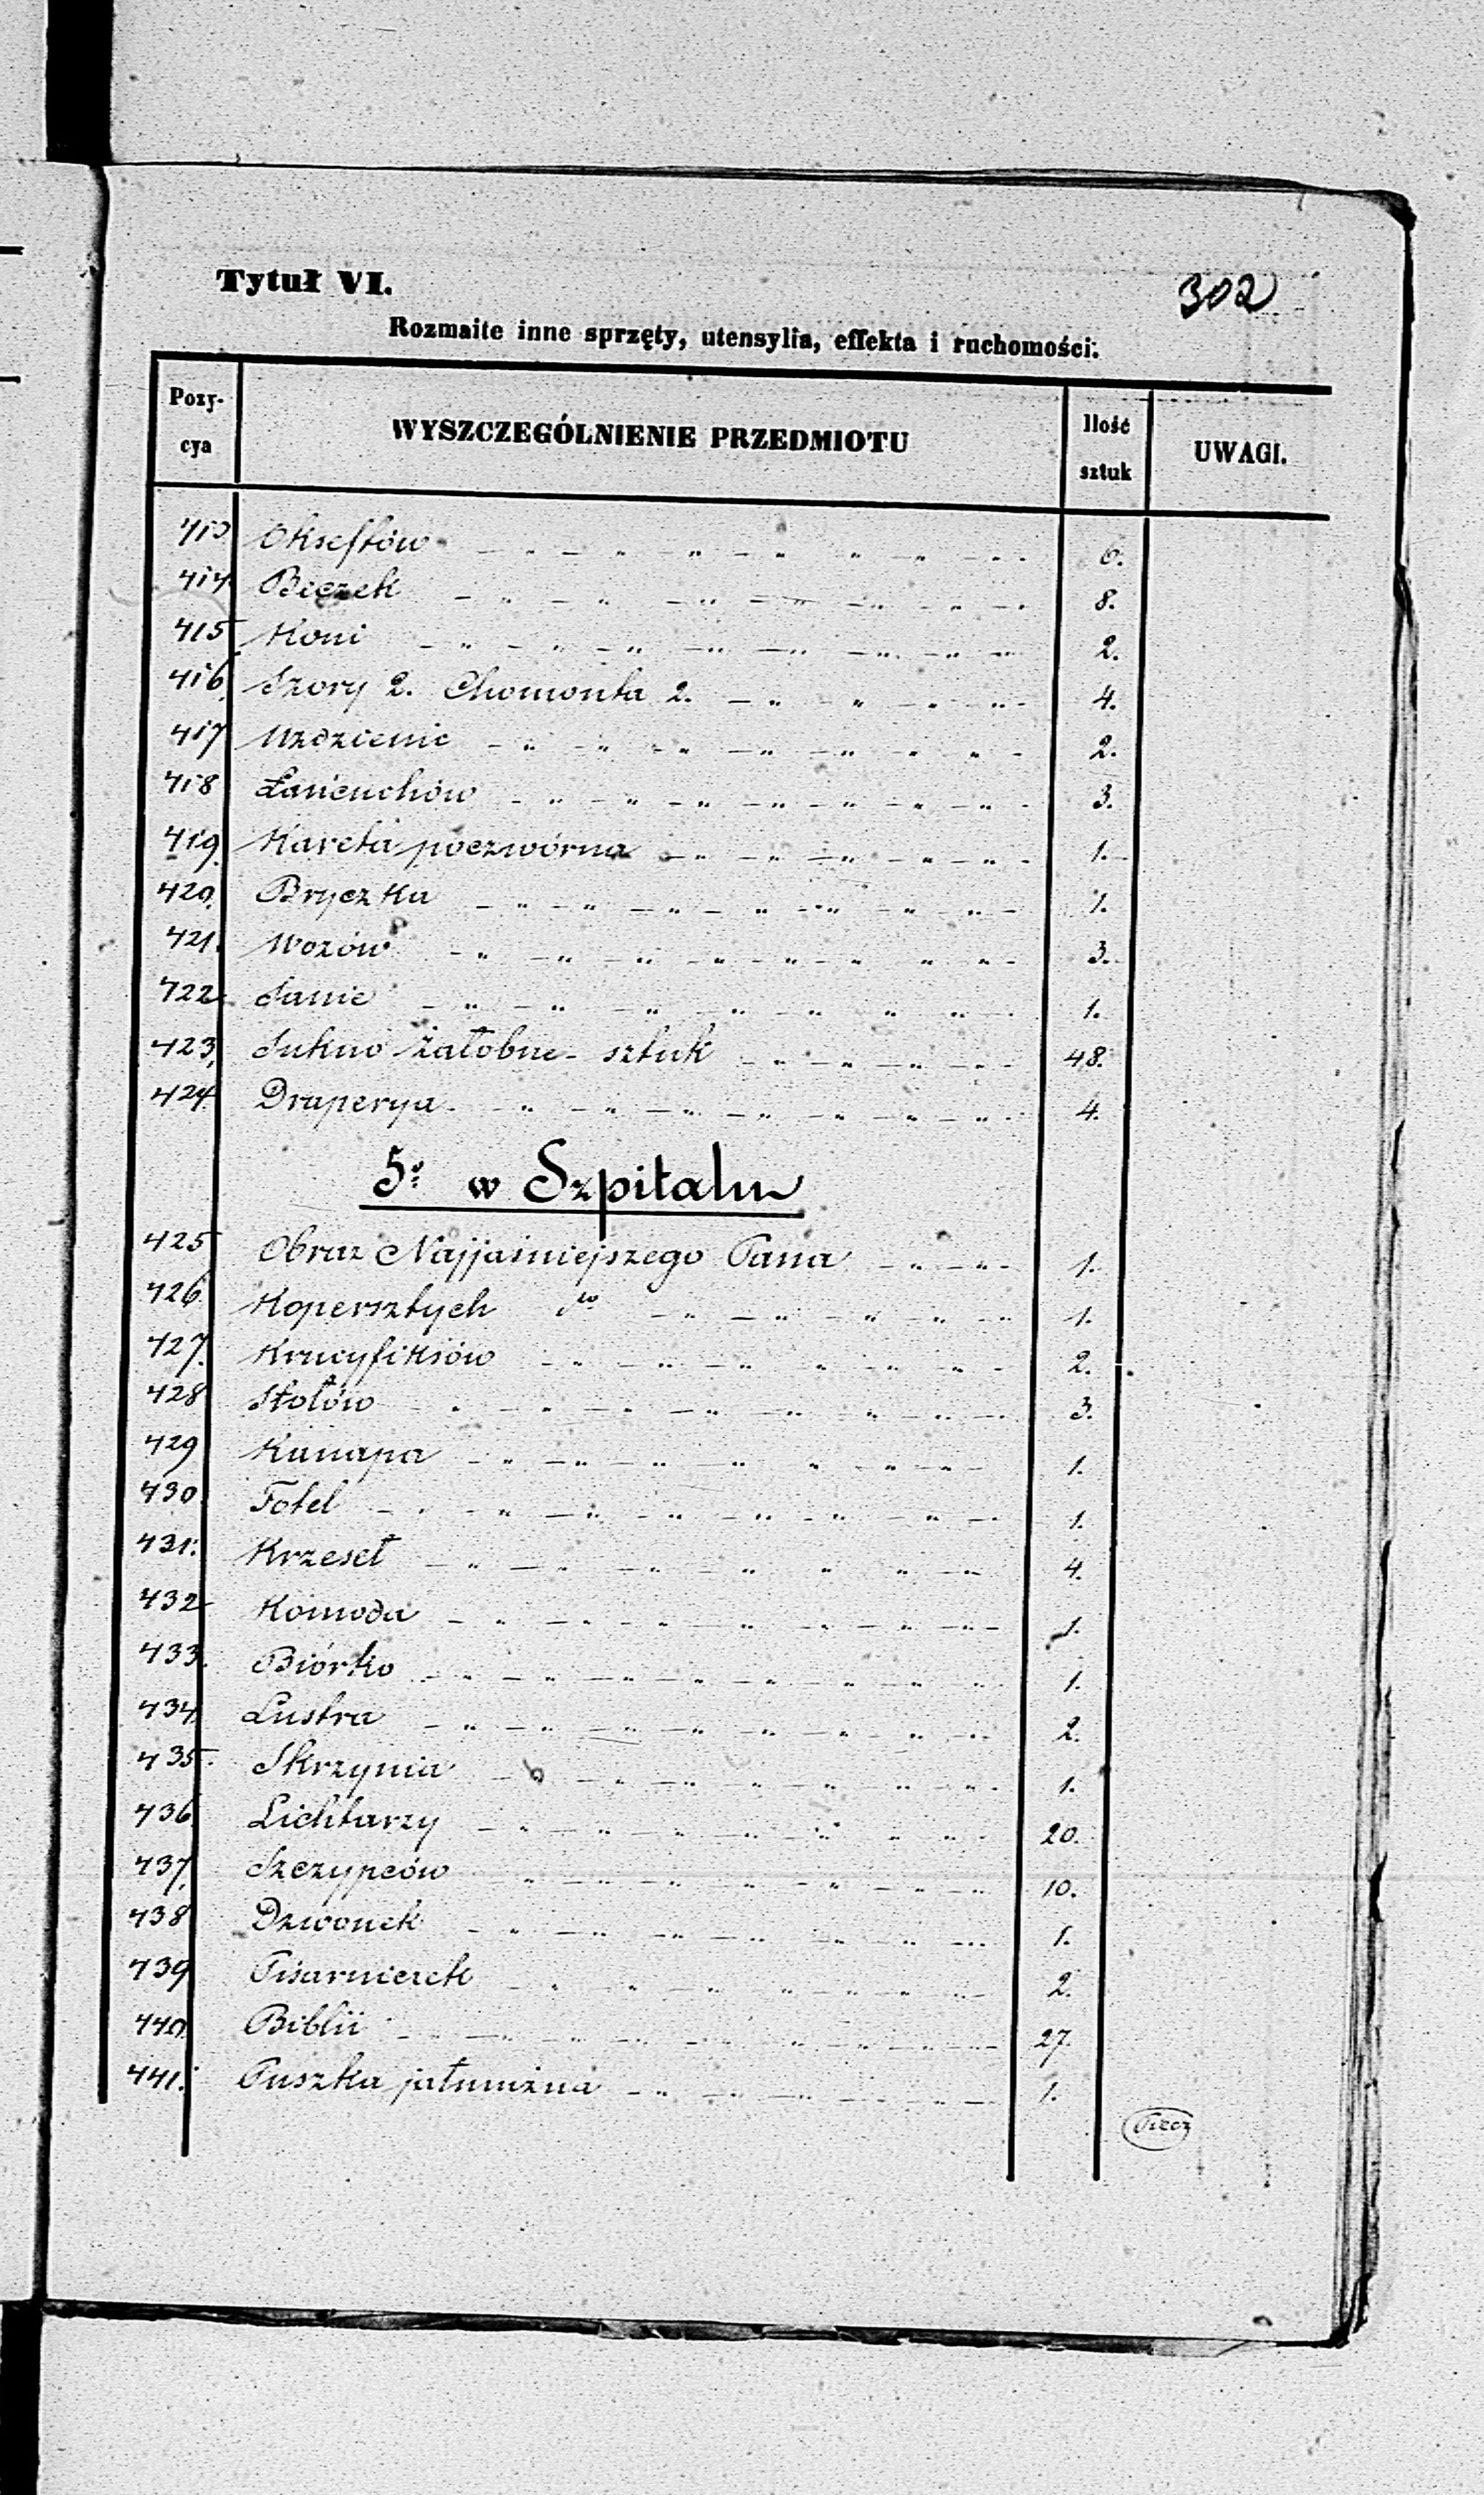 302
Tytuł VI.
Rozmaite inne sprzęty, utensylia, effekta i ruchomości.
Pozycya WYSZCZEGÓLNIENIE PRZEDMIOTU Ilość sztuk UWAGI.
413 Okseftów 6.
414. Beczek 8.
415 Koni 2.
416. Szory 2. Chomonta 2. 4.
417 Uzdzienic 2.
418 Łańcuchów 3.
419. Kareta poczwórna 1.
420. Bryczka 1.
421. Wozów 3.
422. Sanie 1.
423. Sukno żałobne sztuk 48.
424. Draperya 4.
5o w Szpitalu
425 Obraz Najjaśniejszego Pana 1.
426. Kopersztych dto 1.
427. Krucyfiksów 2.
428 Stołów 3.
429 Kanapa 1.
430. Fotel 1.
431. Krzeseł 4.
432 Komoda 1.
433. Biórko 1.
434. Lustra 2.
435. Skrzynia 1.
436. Lichtarzy 20.
437. Szczypców 10.
438 Dzwonek 1.
439 Pisarniczek 2.
440. Biblii 27.
441. Puszka jałmużna 1.